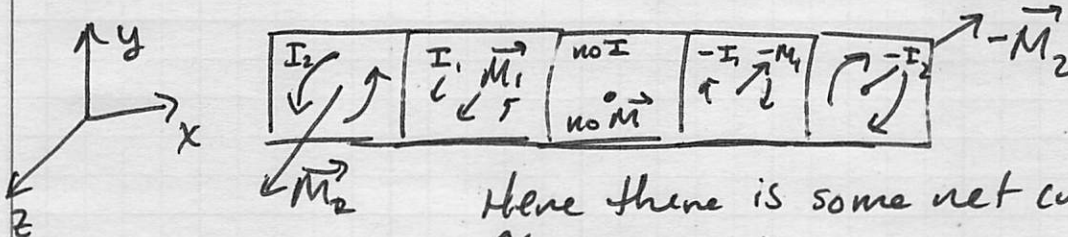 y
x
z
I₂
M⃗₂
I₁ M⃗₁
no I
no M⃗
-I₁ -M₁
-I₂
-M⃗₂
Here there is some net